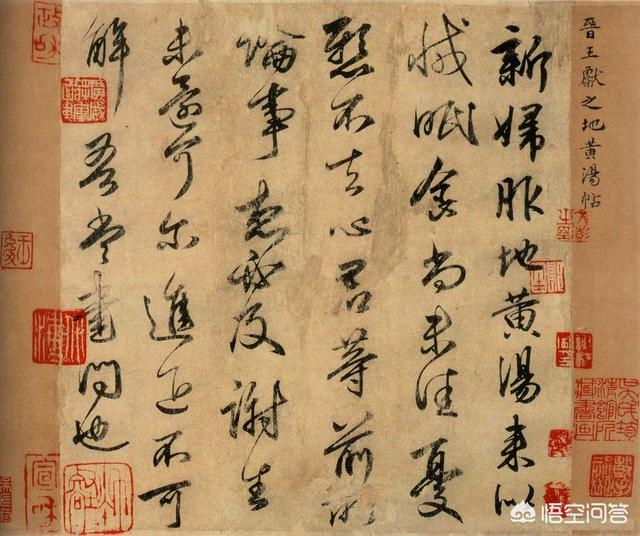 晉王獻之地黄湯帖
新婦服地黄湯来似
減眠食尚未佳憂
懸不去心君等前所
論事想必及謝生
未還可尔進退不可
解吾當書問也
政和
宣和
悟空问答